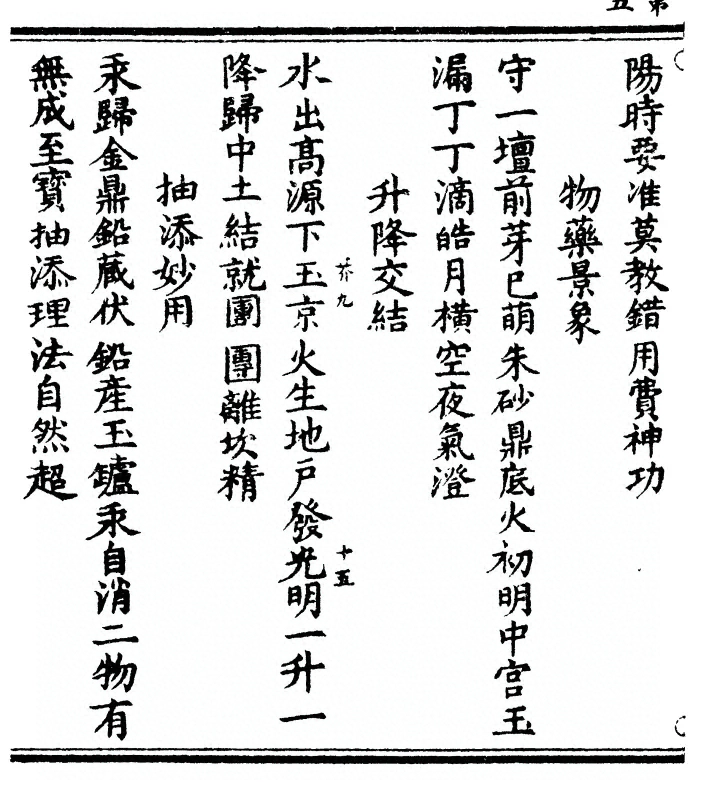 陽時要准莫教錯用費神功
物藥景象
守一壇前芽已萌朱砂鼎底火初明中宮玉
漏丁丁滴皓月橫空夜氣澄
升降交結
芥九
十五
水出高源下玉京火生地戶發光明一升一
降歸中土結就團團離坎精
抽添妙用
汞歸金鼎鉛藏伏鉛產玉鑪汞自消二物有
無成至寶抽添理法自然超